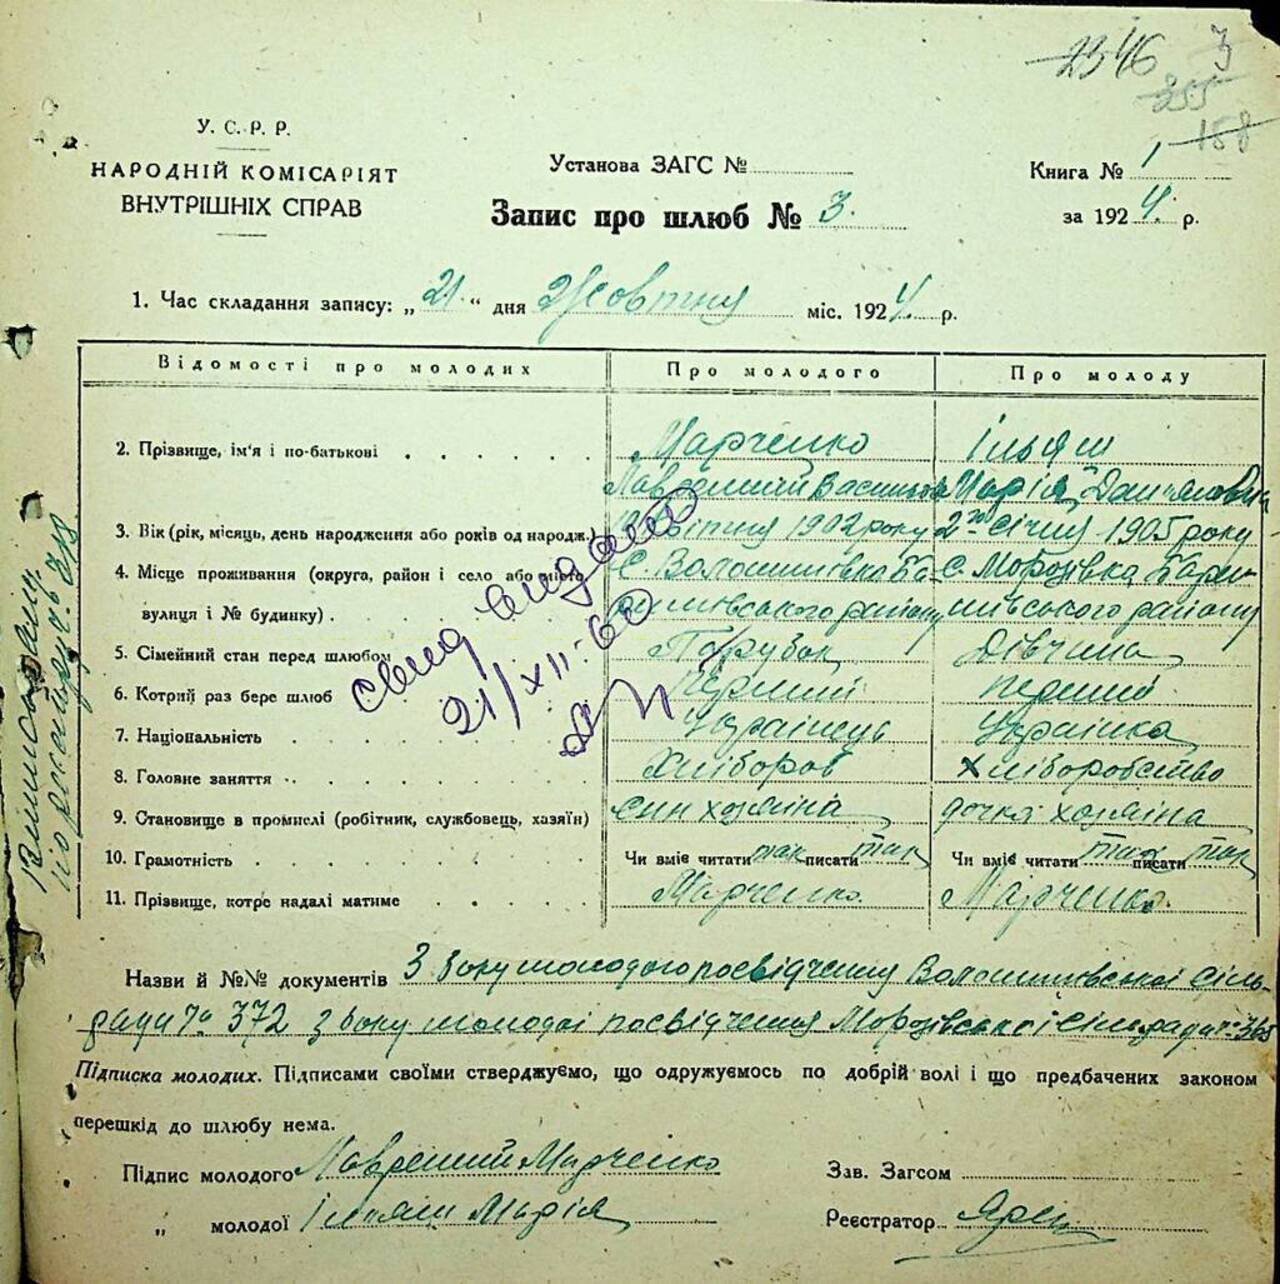 2346 3
355
158
У. С. Р. Р.
НАРОДНІЙ КОМІСАРІЯТ
ВНУТРІШНІХ СПРАВ
Установа ЗАГС №
Запис про шлюб № 3.
Книга № 1
за 1924 р.
1. Час складання запису: „21“ дня Жовтня міс. 1924 р.
Відомості про молодих Про молодого Про молоду
2. Прізвище, ім'я і по-батькові Марченко Ільяш
Лаврентий Васильов Марія Даниловна
3. Вік (рік, місяць, день народження або років од народж.) 1902 року 2го Січня 1905 року
4. Місце проживання (округа, район і село або місто, с. Волошинівка Ба- с. Морозівка Бари-
вулиця і № будинку) ришівського району шівського району
5. Сімейний стан перед шлюбом Парубок Дівчина
6. Котрий раз бере шлюб Перший перший
7. Національність Українець Українка
8. Головне заняття Хлібороб Хліборобство
9. Становище в промислі (робітник, службовець, хазяїн) син хозяїна дочка хозяїна
10. Грамотність Чи вміє читати так писати так Чи вміє читати так писати так
11. Прізвище, котре надалі матиме Марченко. Марченко.
свид видано
21/XII-60
Назви й №№ документів З боку молодого посвідчення Волошинівської Сіль-
ради № 372 з боку молодої посвідчення Морозівської Сільради № 365
Підписка молодих. Підписами своїми стверджуємо, що одружуємось по добрій волі і що предбачених законом
перешкід до шлюбу нема.
Підпис молодого Лаврентий Марченко
„ молодої Ільяш Марія
Зав. Загсом
Реєстратор